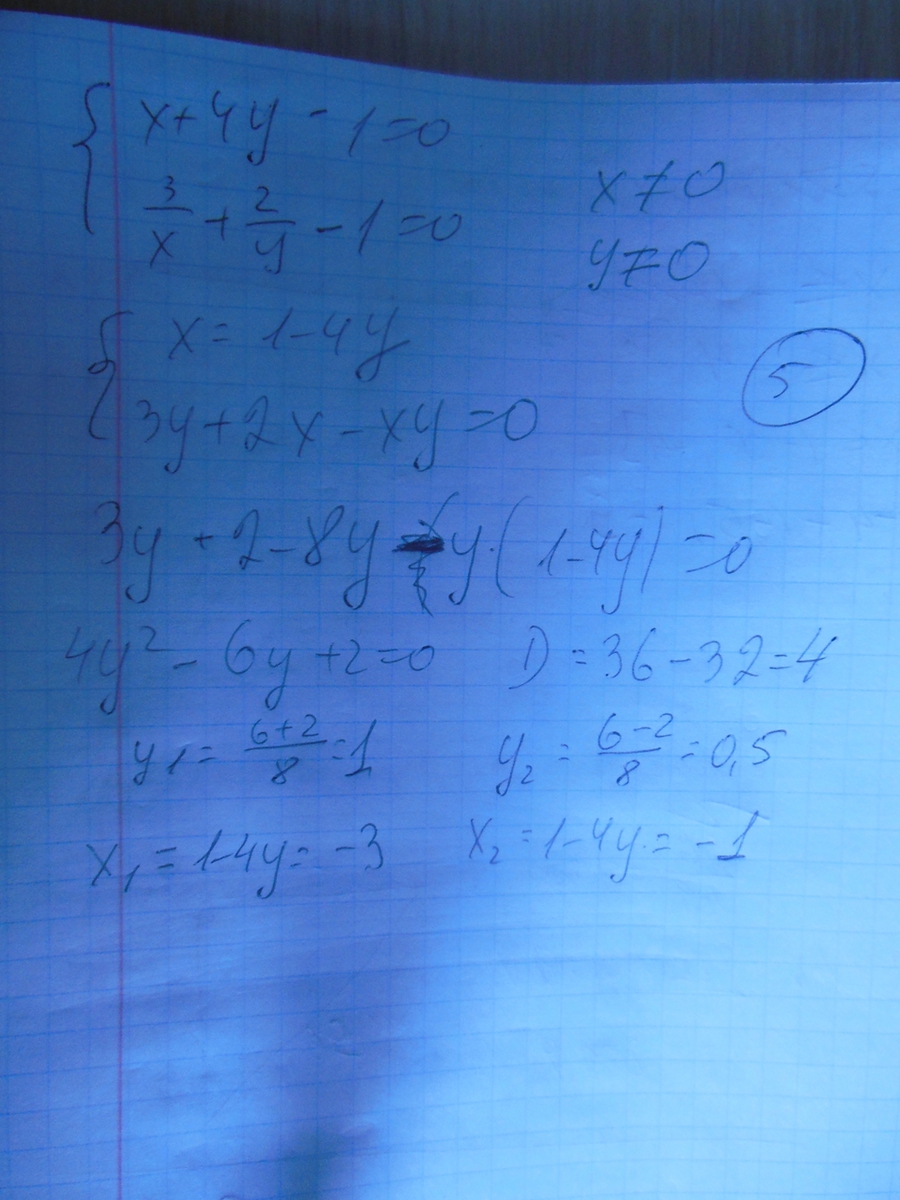 x+4y-1=0
3/x + 2/y - 1=0
x≠0
y≠0
x=1-4y
3y+2x-xy=0
5
3y+2-8y-y·(1-4y)=0
4y²-6y+2=0 D=36-32=4
y₁=(6+2)/8=1 y₂=(6-2)/8=0,5
x₁=1-4y=-3 x₂=1-4y=-1